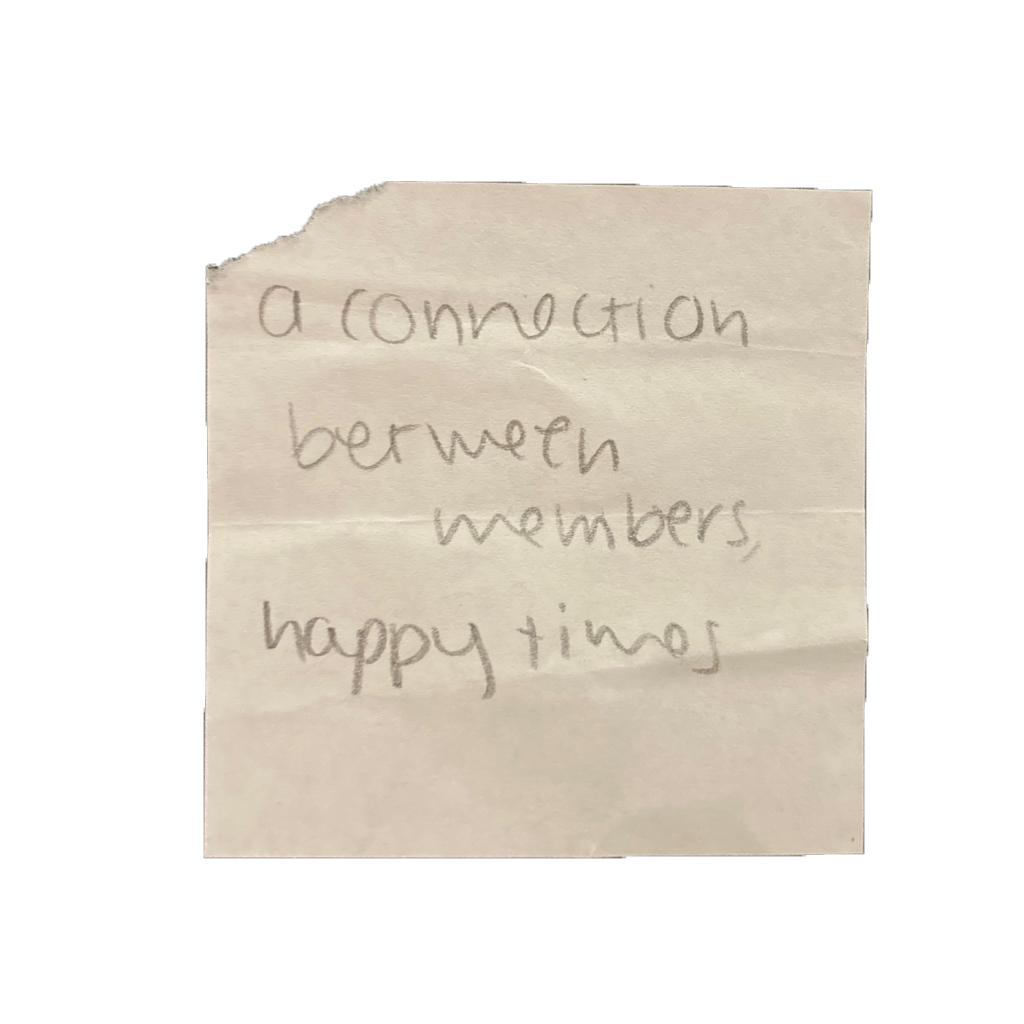 a connection
between
members,
happy times